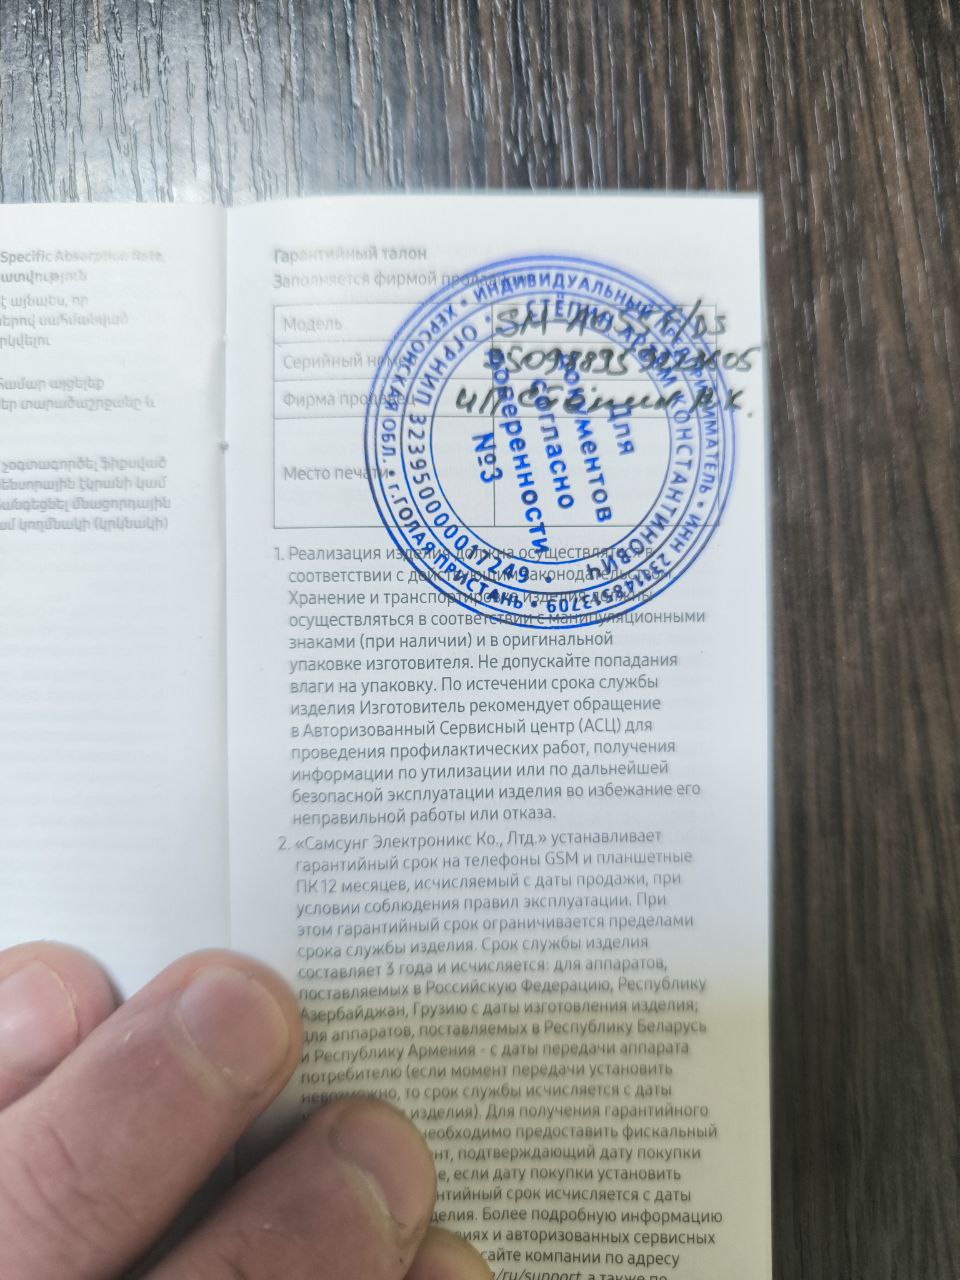 Specific Absorption Rate,
Гарантийный талон
Заполняется фирмой продавцом
Модель
SM-A055F/DS
Серийный номер
Фирма продавец
ИП Стёпин А.К.
Место печати
• ИНДИВИДУАЛЬНЫЙ ПРЕДПРИНИМАТЕЛЬ • ИНН
ХЕРСОНСКАЯ ОБЛ. • г.ГОЛАЯ ПРИСТАНЬ •
СТЁПИН АРТЁМ КОНСТАНТИНОВИЧ
• ОГРНИП 323950000017249 •
Для
документов
согласно
доверенности
№3
1. Реализация изделия должна осуществляться в
соответствии с действующим законодательством.
Хранение и транспортировка изделия должны
осуществляться в соответствии с манипуляционными
знаками (при наличии) и в оригинальной
упаковке изготовителя. Не допускайте попадания
влаги на упаковку. По истечении срока службы
изделия Изготовитель рекомендует обращение
в Авторизованный Сервисный центр (АСЦ) для
проведения профилактических работ, получения
информации по утилизации или по дальнейшей
безопасной эксплуатации изделия во избежание его
неправильной работы или отказа.
2. «Самсунг Электроникс Ко., Лтд.» устанавливает
гарантийный срок на телефоны GSM и планшетные
ПК 12 месяцев, исчисляемый с даты продажи, при
условии соблюдения правил эксплуатации. При
этом гарантийный срок ограничивается пределами
срока службы изделия. Срок службы изделия
составляет 3 года и исчисляется: для аппаратов,
поставляемых в Российскую Федерацию, Республику
Азербайджан, Грузию с даты изготовления изделия;
для аппаратов, поставляемых в Республику Беларусь
и Республику Армения - с даты передачи аппарата
потребителю (если момент передачи установить
невозможно, то срок службы исчисляется с даты
изделия). Для получения гарантийного
необходимо предоставить фискальный
подтверждающий дату покупки
если дату покупки установить
срок исчисляется с даты
Более подробную информацию
и авторизованных сервисных
сайте компании по адресу
/ru/support, а также по